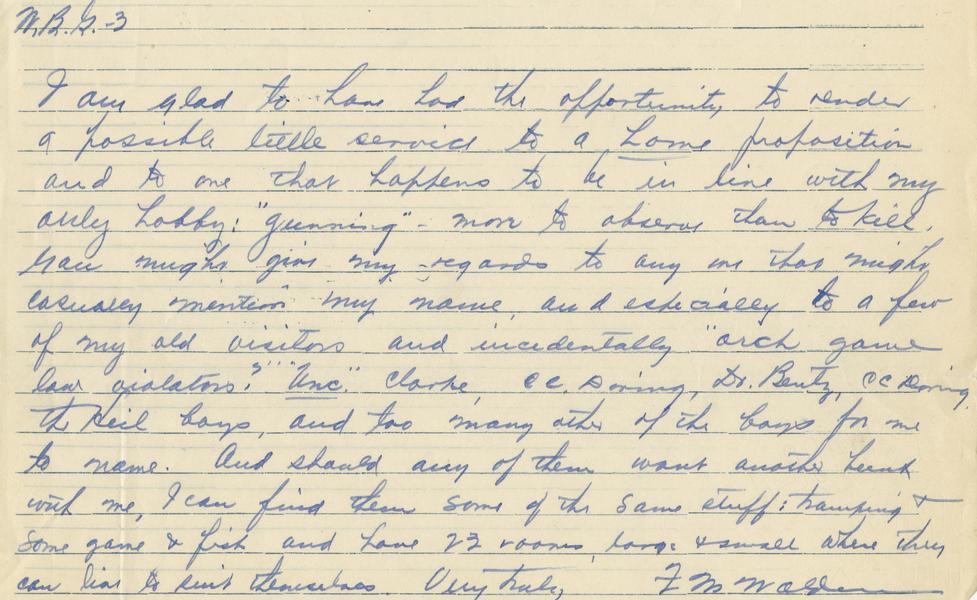 W.B.G.-3
I am glad to have had the opportunity to render
a possible little service to a home proposition
and to one that happens to be in line with my
only hobby: "gunning" - more to observe than to kill.
You might give my regards to any one that might
casually mention my name, and especially to a few
of my old visitors and incedentally "arch game
law violators." "Unc". Clarke, C.C. Doring, Dr. Bentz, CC Doring,
the Keil boys, and too many other of the boys for me
to name. And should any of them want another hunt
with me, I can find them some of the same stuff: tramping &
some game & fish and have 23 rooms, large & small where they
can live to suit themselves. Very truly, F M Walden